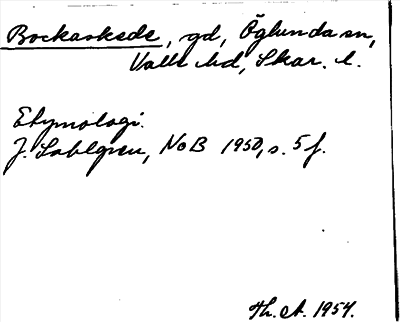 Bockaskede, gd, Öglunda sn,
Valle hd, Skar. l.
Etymologi.
J. Sahlgren, NoB 1950, s. 5 f.
Th. A. 1954.